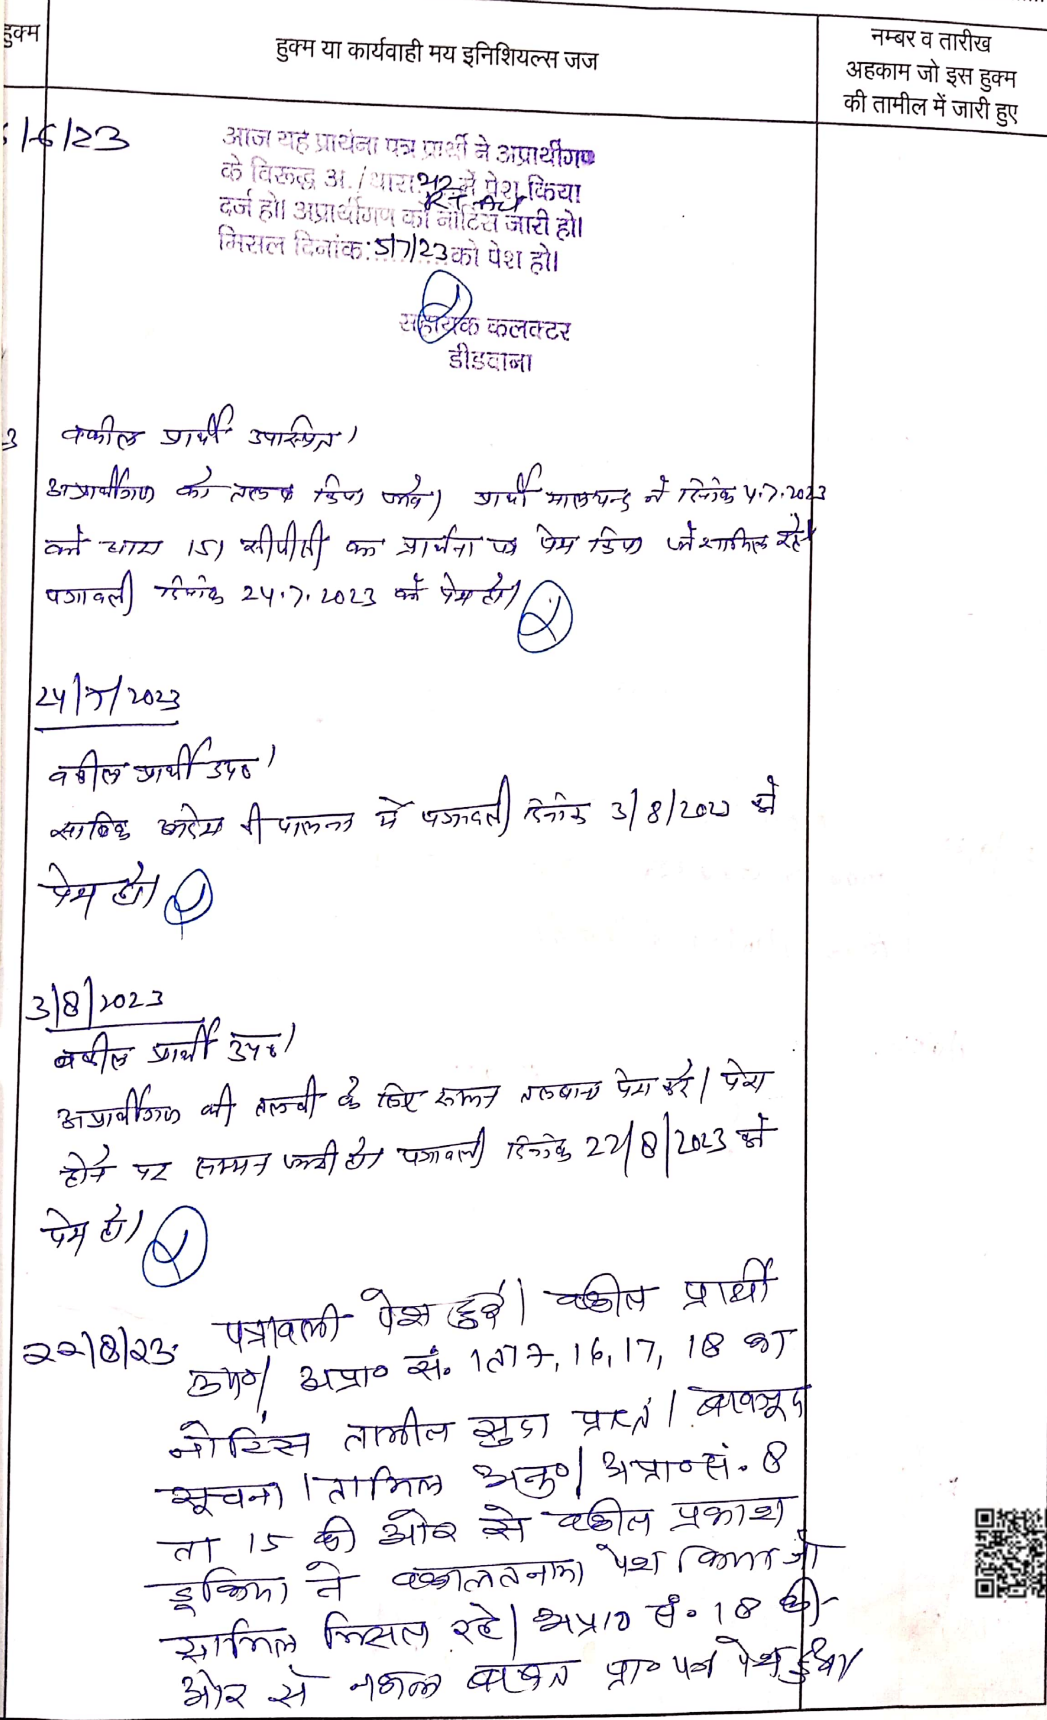 हुक्म
हुक्म या कार्यवाही मय इनिशियल्स जज
नम्बर व तारीख
अहकाम जो इस हुक्म
की तामील में जारी हुए
/6/23
आज यह प्रार्थना पत्र प्रार्थी ने अप्रार्थीगण
के विरूद्ध अ./धारा 212 में पेश किया
RT Act
दर्ज हो। अप्रार्थीगण को नोटिस जारी हो।
मिसल दिनांक: 5/7/23 को पेश हो।
सहायक कलक्टर
डीडवाना
3 वकील प्रार्थी उपस्थित।
अप्रार्थीगण को तलब किया जावे। प्रार्थी मालचन्द ने दिनांक 4.7.2023
को धारा 151 सीपीसी का प्रार्थना पत्र पेश किया जो शामिल रहे।
पत्रावली दिनांक 24.7.2023 को पेश हो।
24/7/2023
वकील प्रार्थी उप०।
साबिक आदेश की पालना में पत्रावली दिनांक 3/8/2023 को
पेश हो।
3/8/2023
वकील प्रार्थी उप०।
अप्रार्थीगण की तलबी के लिए सम्मन तलबाना पेश करे। पेश
होने पर सम्मन जारी हो। पत्रावली दिनांक 22/8/2023 को
पेश हो।
22/8/23. पत्रावली पेश हुई। वकील प्रार्थी
उप०। अप्रा० सं. 1 ता 7, 16, 17, 18 का
नोटिस तामील सुदा प्राप्त। बावजूद
सूचना। तामिल अनु०। अप्रा० सं. 8
ता 15 की ओर से वकील प्रकाश
ने वकालतनामा पेश किया जो
सामिल मिसल रहे। अप्रा० सं. 18 की
ओर से नकल बाबत प्रा० पत्र पेश हुआ